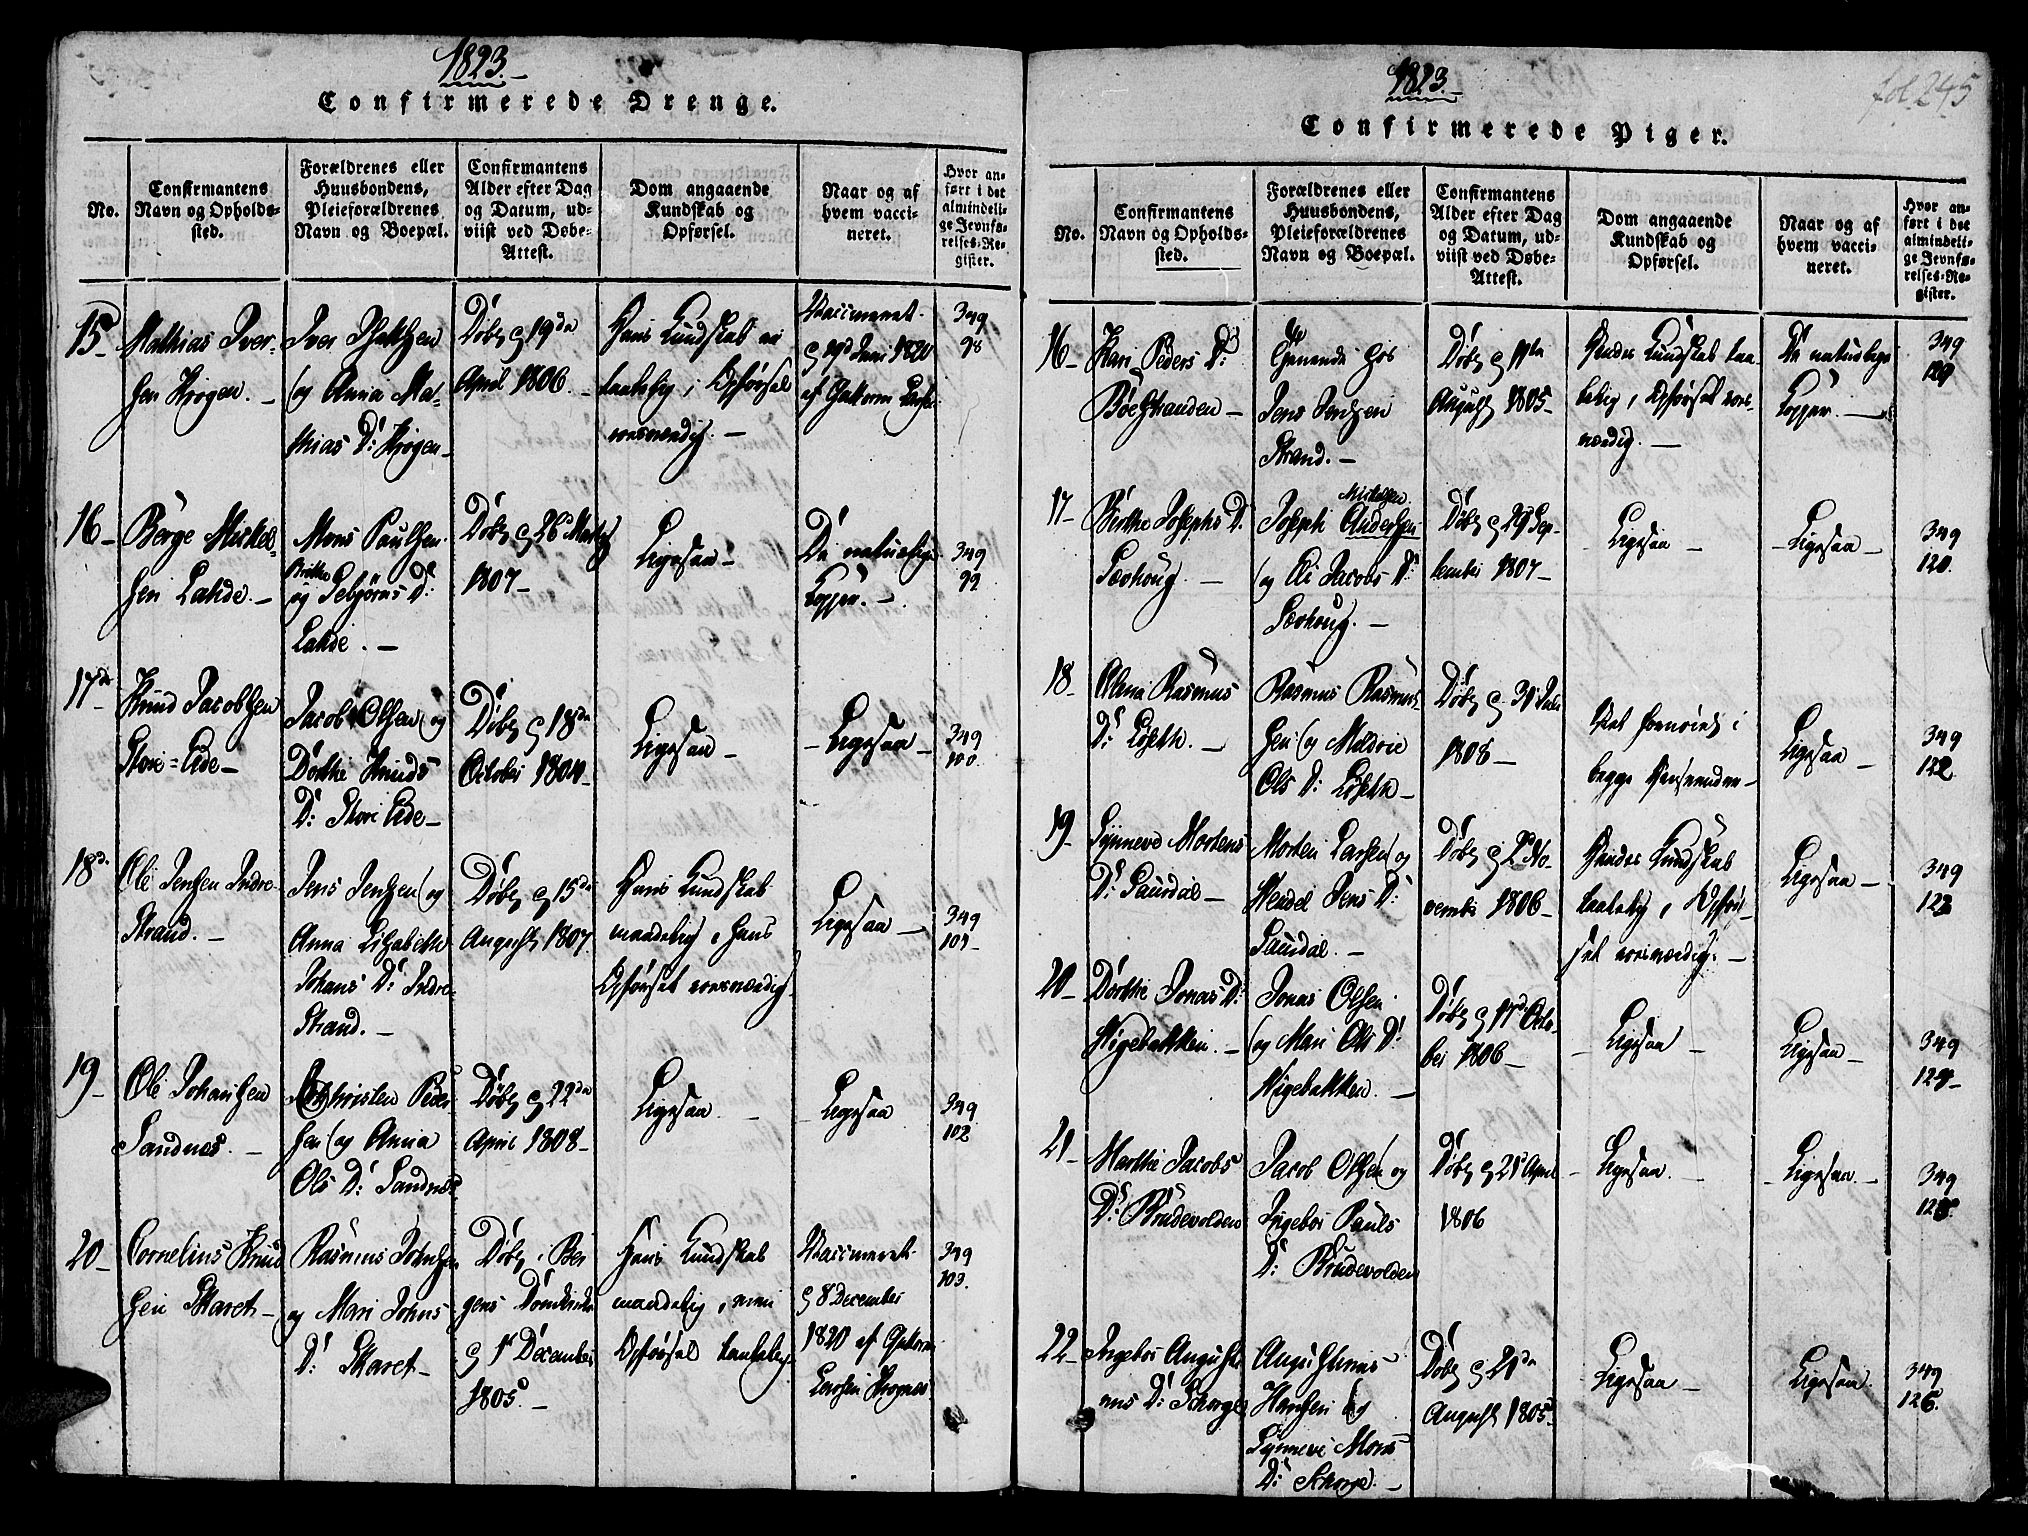 1823.
Confirmerede Drenge.
No.
Confirmantens
Navn og Opholds-
sted.
Forældrenes eller
Huusbondens,
Pleieforældrenes
Navn og Boepæl.
Confirmantens
Alder efter Dag
og Datum, ud-
viist ved Døbe-
Attest.
Dom angaaende
Kundskab og
Opførsel.
Naar og af
hvem vacci-
neret.
Hvor an-
ført i det
almindeli-
ge Jevnfø-
relses-Re-
gister.
15
Mathias Iver-
sen
Iver
og Anna Ma-
thias D:
Døbt 19de
April 1806.
Hans Kundskab
taalelig, Opførsel
roesværdig.
Vaccineret
19d Juni 1820
af Guttorm
349
98
16
Børge Mickel-
sen Lahde.
Mons Paulsen
Brithe
og Sebjørns D:
Lahde.
Døbt 26 Martz
1807
Ligesaa
De naturlige
Kopper.
349
99
17de
Knud Jacobsen
Store=Eide
Jacob Olsen og
Dorthe Knuds
D: Store Eide
Døbt 18de
October 1804
Ligesaa
Ligesaa
349
100.
18d.
Ole Jensen Indre
Strand.
Jens Jensen og
Anna Lisabeth
Johans D: Indre
Strand.
Døbt 15de
August 1807
Hans Kundskab
maadelig, hans
Opførsel roesværdig
Ligesaa
349
101
19
Ole Johansen
Sandnes.
Christen Peder
sen og Anna
Ols D: Sandnes
Døbt 22de
April 1808
Ligesaa
Ligesaa
349
102
20
Cornelius Knud
sen Skaret
Rasmus Johnsen
og Mari Johns
D: Skaret
Døbt i Ber
gens Domkirke
1 December
1805.
Hans Kundskab
maadelig, men
Opførsel taalelig
Vaccineret
8 December
1820 af Guttorm
Larsen
349
103.
1823.
fol 245
Confirmerede Piger.
No.
Confirmantens
Navn og Opholds-
sted.
Forældrenes eller
Huusbondens,
Pleieforældrenes
Navn og Boepæl.
Confirmantens
Alder efter Dag
og Datum, ud-
viist ved Døbe-
Attest.
Dom angaaende
Kundskab og
Opførsel.
Naar og af
hvem vacci-
neret.
Hvor an-
ført i det
almindeli-
ge Jevnfø-
relses-Re-
gister.
16
Kari Peders D:
Tjenende hos
Jens Jensen
Strand.
Døbt 11te
August 1805
Hendes Kundskab taa-
lelig, Opførsel roes-
værdig.
De naturlige
Kopper.
349
17
Berthe Josephs D.
Sævhoug.
Mickelsen
Joseph Andersen
og Eli Jacobs D:
Sævhoug.
Døbt 29 Sep-
tember 1807
Ligesaa
Ligesaa
349
120.
18
Olena Rasmus
D: Løseth.
Rasmus Rasmus-
sen og Mildrie
Ols D: Løseth
Døbt 31 Juli
1808
Vel fornøiet i
begge Henseender
Ligesaa
349
122
19
Synneve Mortens
D: Saurdal
Morten Larsen og
Jens D:
Saurdal.
Døbt 2 No-
vember 1806
Hendes Kundskab
taalelig, Opfør-
sel roesværdig.
Ligesaa
349
123
20
Dorthe Jonas D:
Higebakken.
Jonas Olsen
og Mari Ols D:
Higebakken.
Døbt 11d Octo-
ber 1806
Ligesaa
Ligesaa
349
124
21
Marthe Jacobs
D: Brudevolden
Jacob Olsen og
Ingebor Pauls
D: Brudevolden
Døbt 21 April
1806
Ligesaa
Ligesaa
349
125
22
Ingebor Augusti
nus D: Schorge
Augustinus
Hansen og
Synneve Mons
D: Schorge.
Døbt 21de
August 1805
Ligesaa
Ligesaa
349
126.